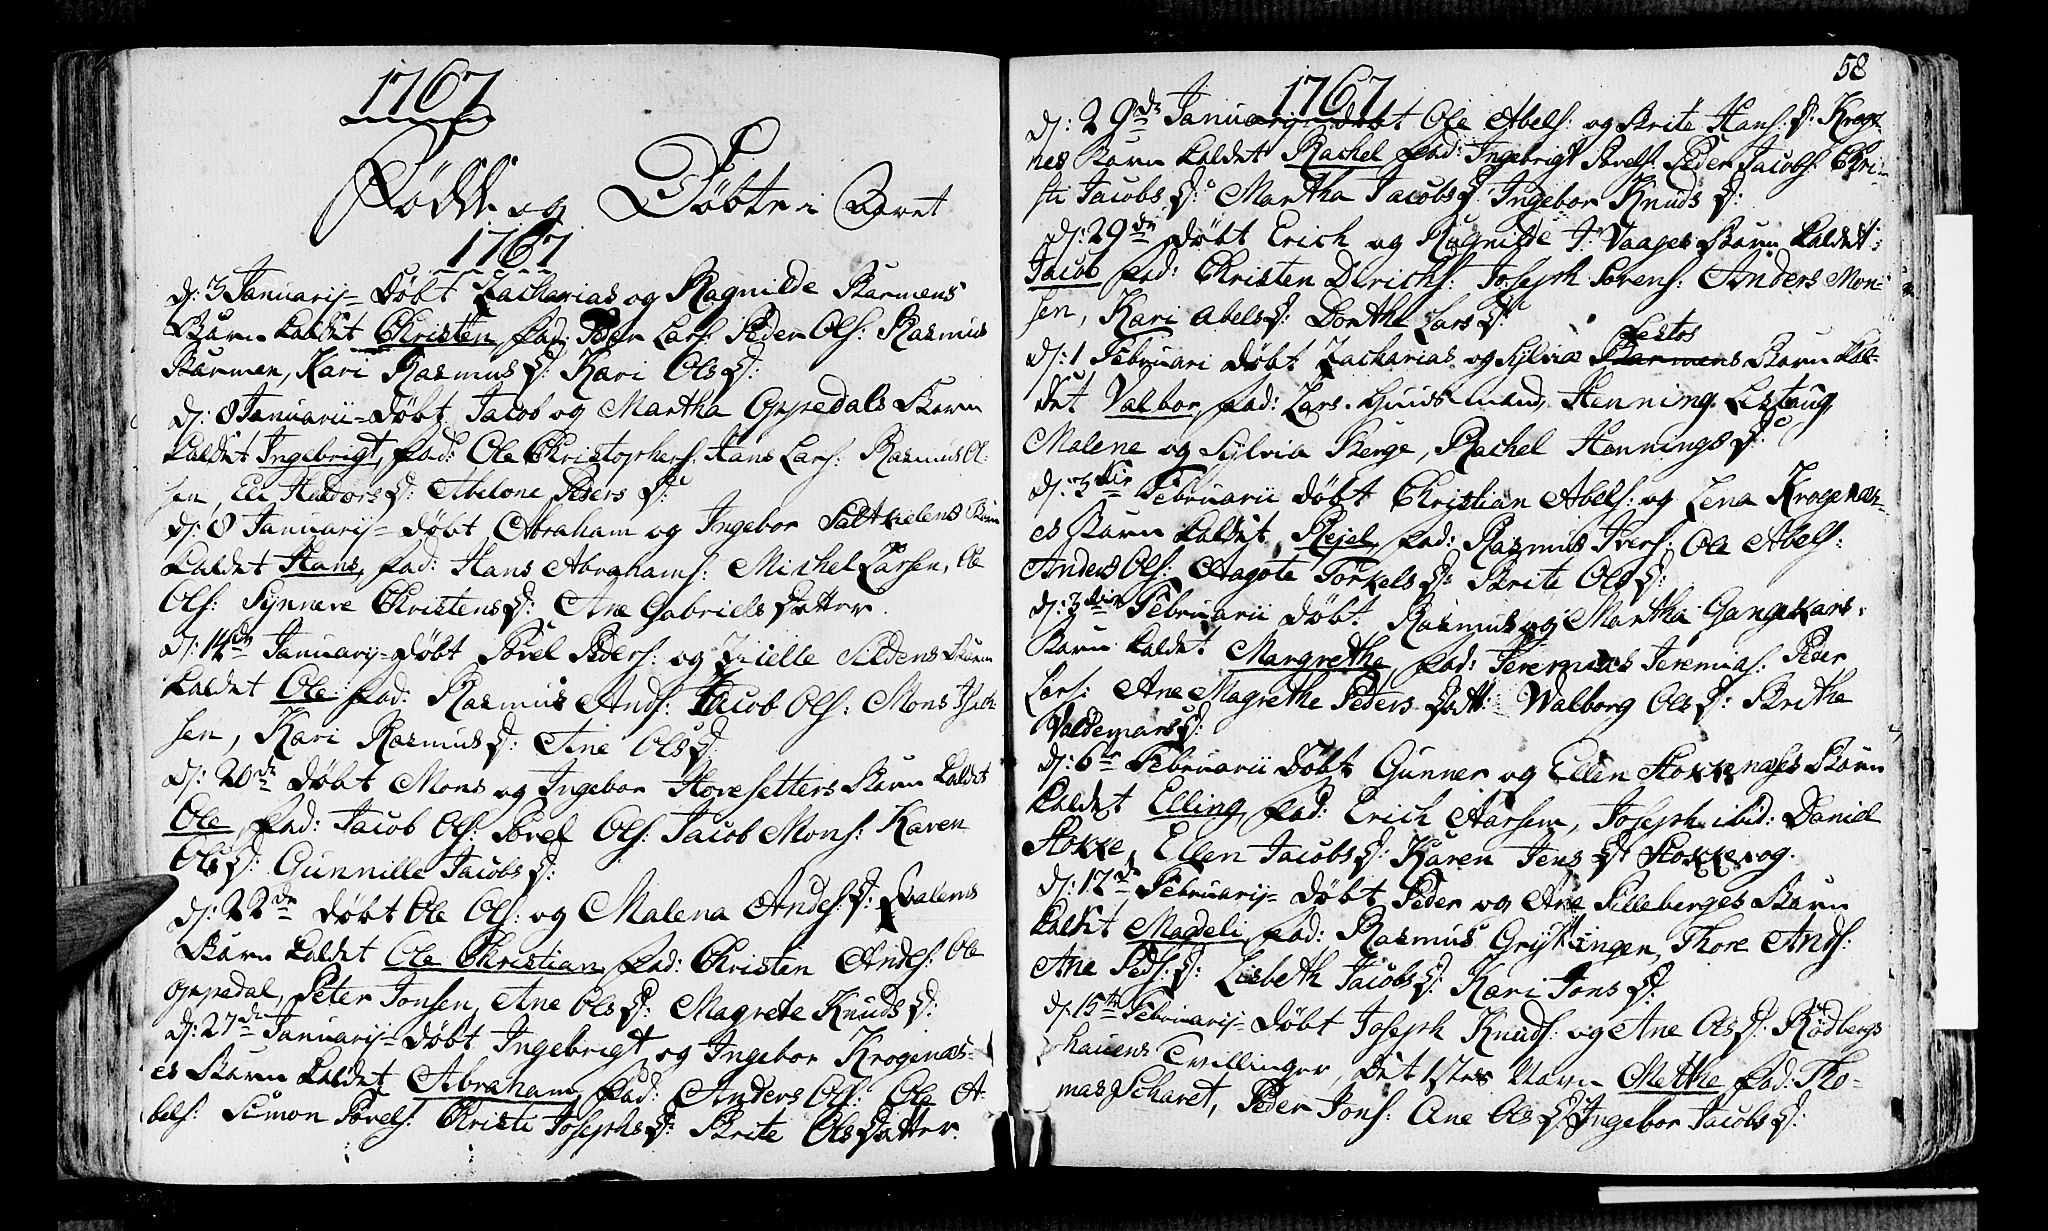 1767
Fødde og Døbte i Aaret
1767
D: 3 Januarij Døbt Zacharias og Ragnilde Barmens
Barn kaldet Christen fad: Peder Lars: Peder Ols: Rasmus
Barmen, Kari Rasmus D: Kari Ols D:
D: 8 Januarii Døbt Jacob og Martha Oppedals Barn
kaldet Ingebrigt, fad: Ole Christophers: Hans Lars: Rasmus Ol-
sen, Eli Haldors D: Abelone Peders D:
D: 8 Januarij Døbt Abraham og Ingebor Saltkelens Barn
kaldet Hans, fad: Hans Abrahams: Michel Larsen, Ole
Ols: Synneve Christens D: Ane Gabriels Datter.
D: 14de Januarij Døbt Povel Peders: og Zidelle Sildens Barn
kaldet Ole fad: Rasmus Ands: Jacob Ols: Mons
sen, Kari Rasmus D: Ane Ols D:
D: 20de Døbt Mons og Ingebor Hovesetters Barn kaldet
Ole fad: Jacob Ols: Povel Ols: Jacob Mons: Karen
Ols D: Gunnille Jacobs D:
D: 22de Døbt Ole Ols: og Malena Anders: D: Qvalens
Barn kaldet Ole Christian fad: Christen Anders: Ole
Oppedal, Peter Jonsen, Ane Ols D: Magrete Knuds D:
D: 27de Januarij Døbt Ingebrigt og Ingebor Krogenæs-
es Barn kaldet Abraham, fad: Anders Ols: Ole A-
bels: Simon Povels: Christi Josephs D: Brite Ols Datter.
58
1767
D: 29de Januarij Døbt Ole Abels: og Brite Hans: D: Kroge
nes Barn kaldet Rachel fad: Ingebrigt Povels: Peder Jacobs: Chri-
sti Jacobs D: Martha Jacobs D: Ingebor Knuds D:
D: 29de Døbt Erich og Ragnilde I: Vaages Barn kaldet
Jacob fad: Christen Dirichs: Joseph Sørens: Anders Mon-
sen, Kari Abels D: Dorthe Lars D:
Lestos
D: 1 Februari Døbt Zacharias og Sylvia Barmens Barn kal-
det Valbor, fad: Lars Huusmand, Henning Lestoug,
Malene og Sylvia Berge, Rachel Hennings D:
D: 3die Februarii Døbt Christian Abels: og Lena Krogenæs-
es Barn kaldet, Rejel, fad: Rasmus Ivers: Ole Abels:
Anders Ols: Aagote Torkels D: Brite Ols D:
D: 3die Februarii Døbt. Rasmus og Martha Gangskars
Barn kaldet Margrethe, fad: Jeremias Jeremias: Peder
Lars: Ane Magrethe Peders Datt: Walborg Ols D: Brithe
Valdemars D:
D: 6te Februarii Døbt Gunner og Ellen Stokkenæses Barn
kaldet Elling, fad: Erich Aarsem, Joseph ibid: Daniel
Stokke, Ellen Jacobs D: Karen Jens D: Stokke og.
D: 12de Februarij Døbt Peder og Ane Silleberges Barn
kaldet Magdeli, fad: Rasmus Gryttingen, Thore Ands:
Ane Peds: D: Lisbeth Jacobs D: Kari Jons D:
D: 15te Februarij Døbt Joseph Knuds: og Ane Ols D: Rødbergs
hauens Tvillinger, det 1ste Navn Mette fad: Tho-
mas Scharet, Peder Jons: Ane Ols D: Ingebor Jacobs D: